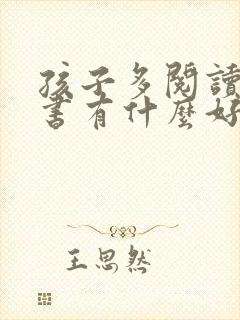 孩子多閱讀
書有什麼好
王思然